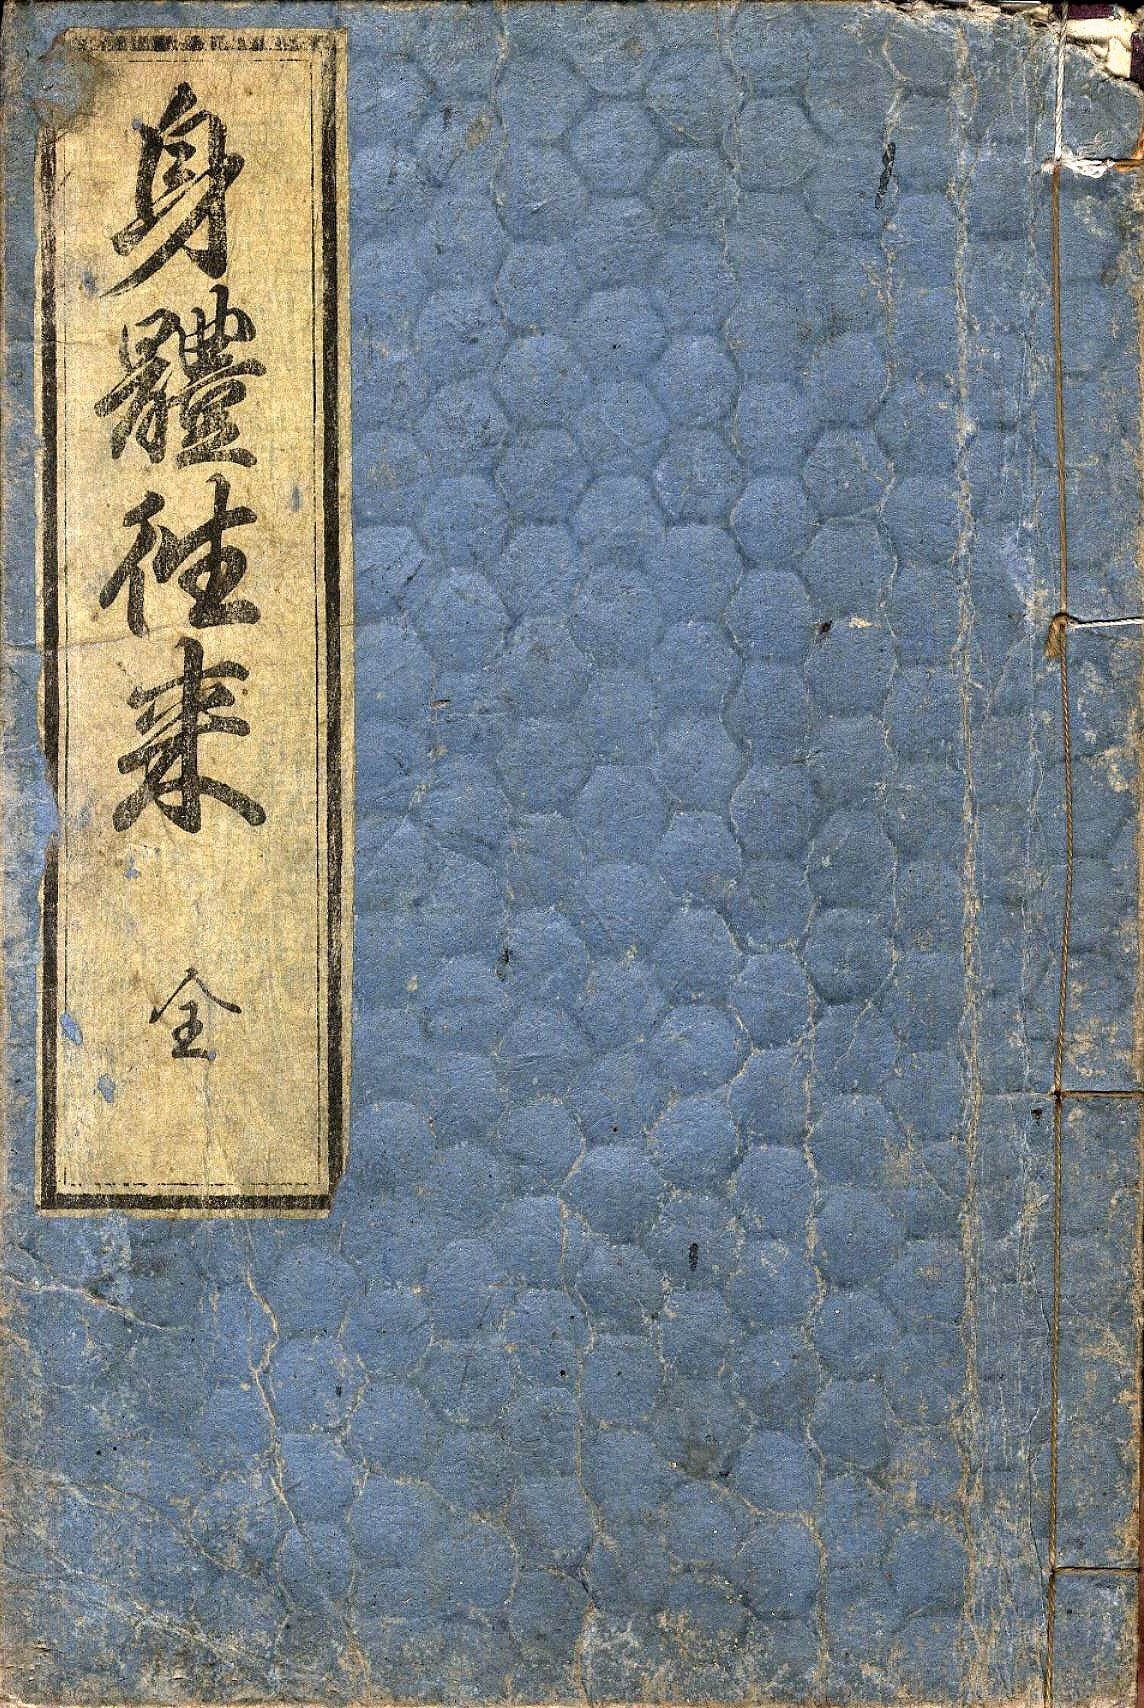 身體往来
全